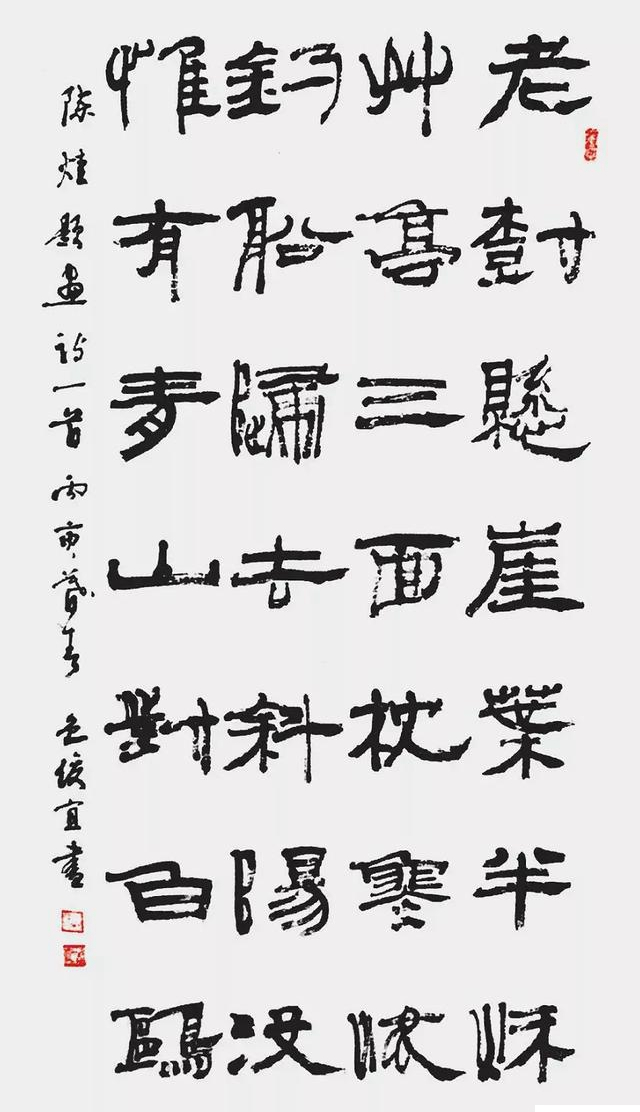 老樹懸崖葉半秌
艸亭三面枕寒流
釣船歸去斜陽没
惟有青山對白鷗
陳煒題畫詩一首 丙寅暮春 包俊宜書